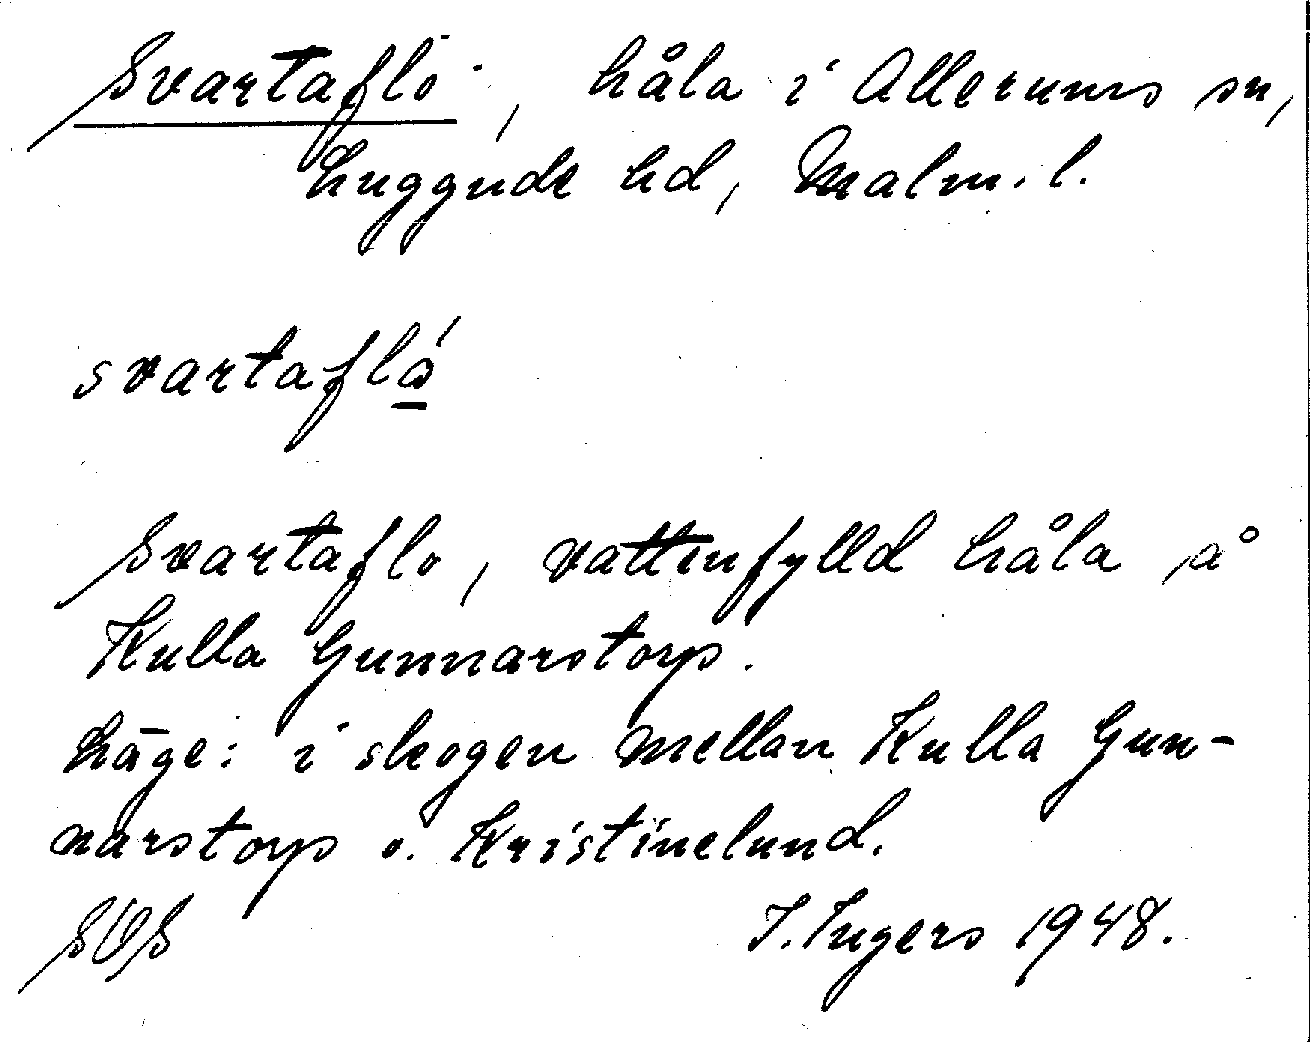 Svartaflo, håla i Allerums sn,
Luggude hd, Malm. l.
svartaflǻ
Svartaflo, vattenfylld håla på
Kulla Gunnarstorp.
Läge: i skogen mellan Kulla Gun-
narstorp o. Kristinelund.
I. Ingers 1948.